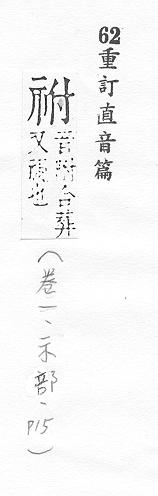 62重訂直音篇
祔音附合葬
又祔也
(卷一、示部、P15)